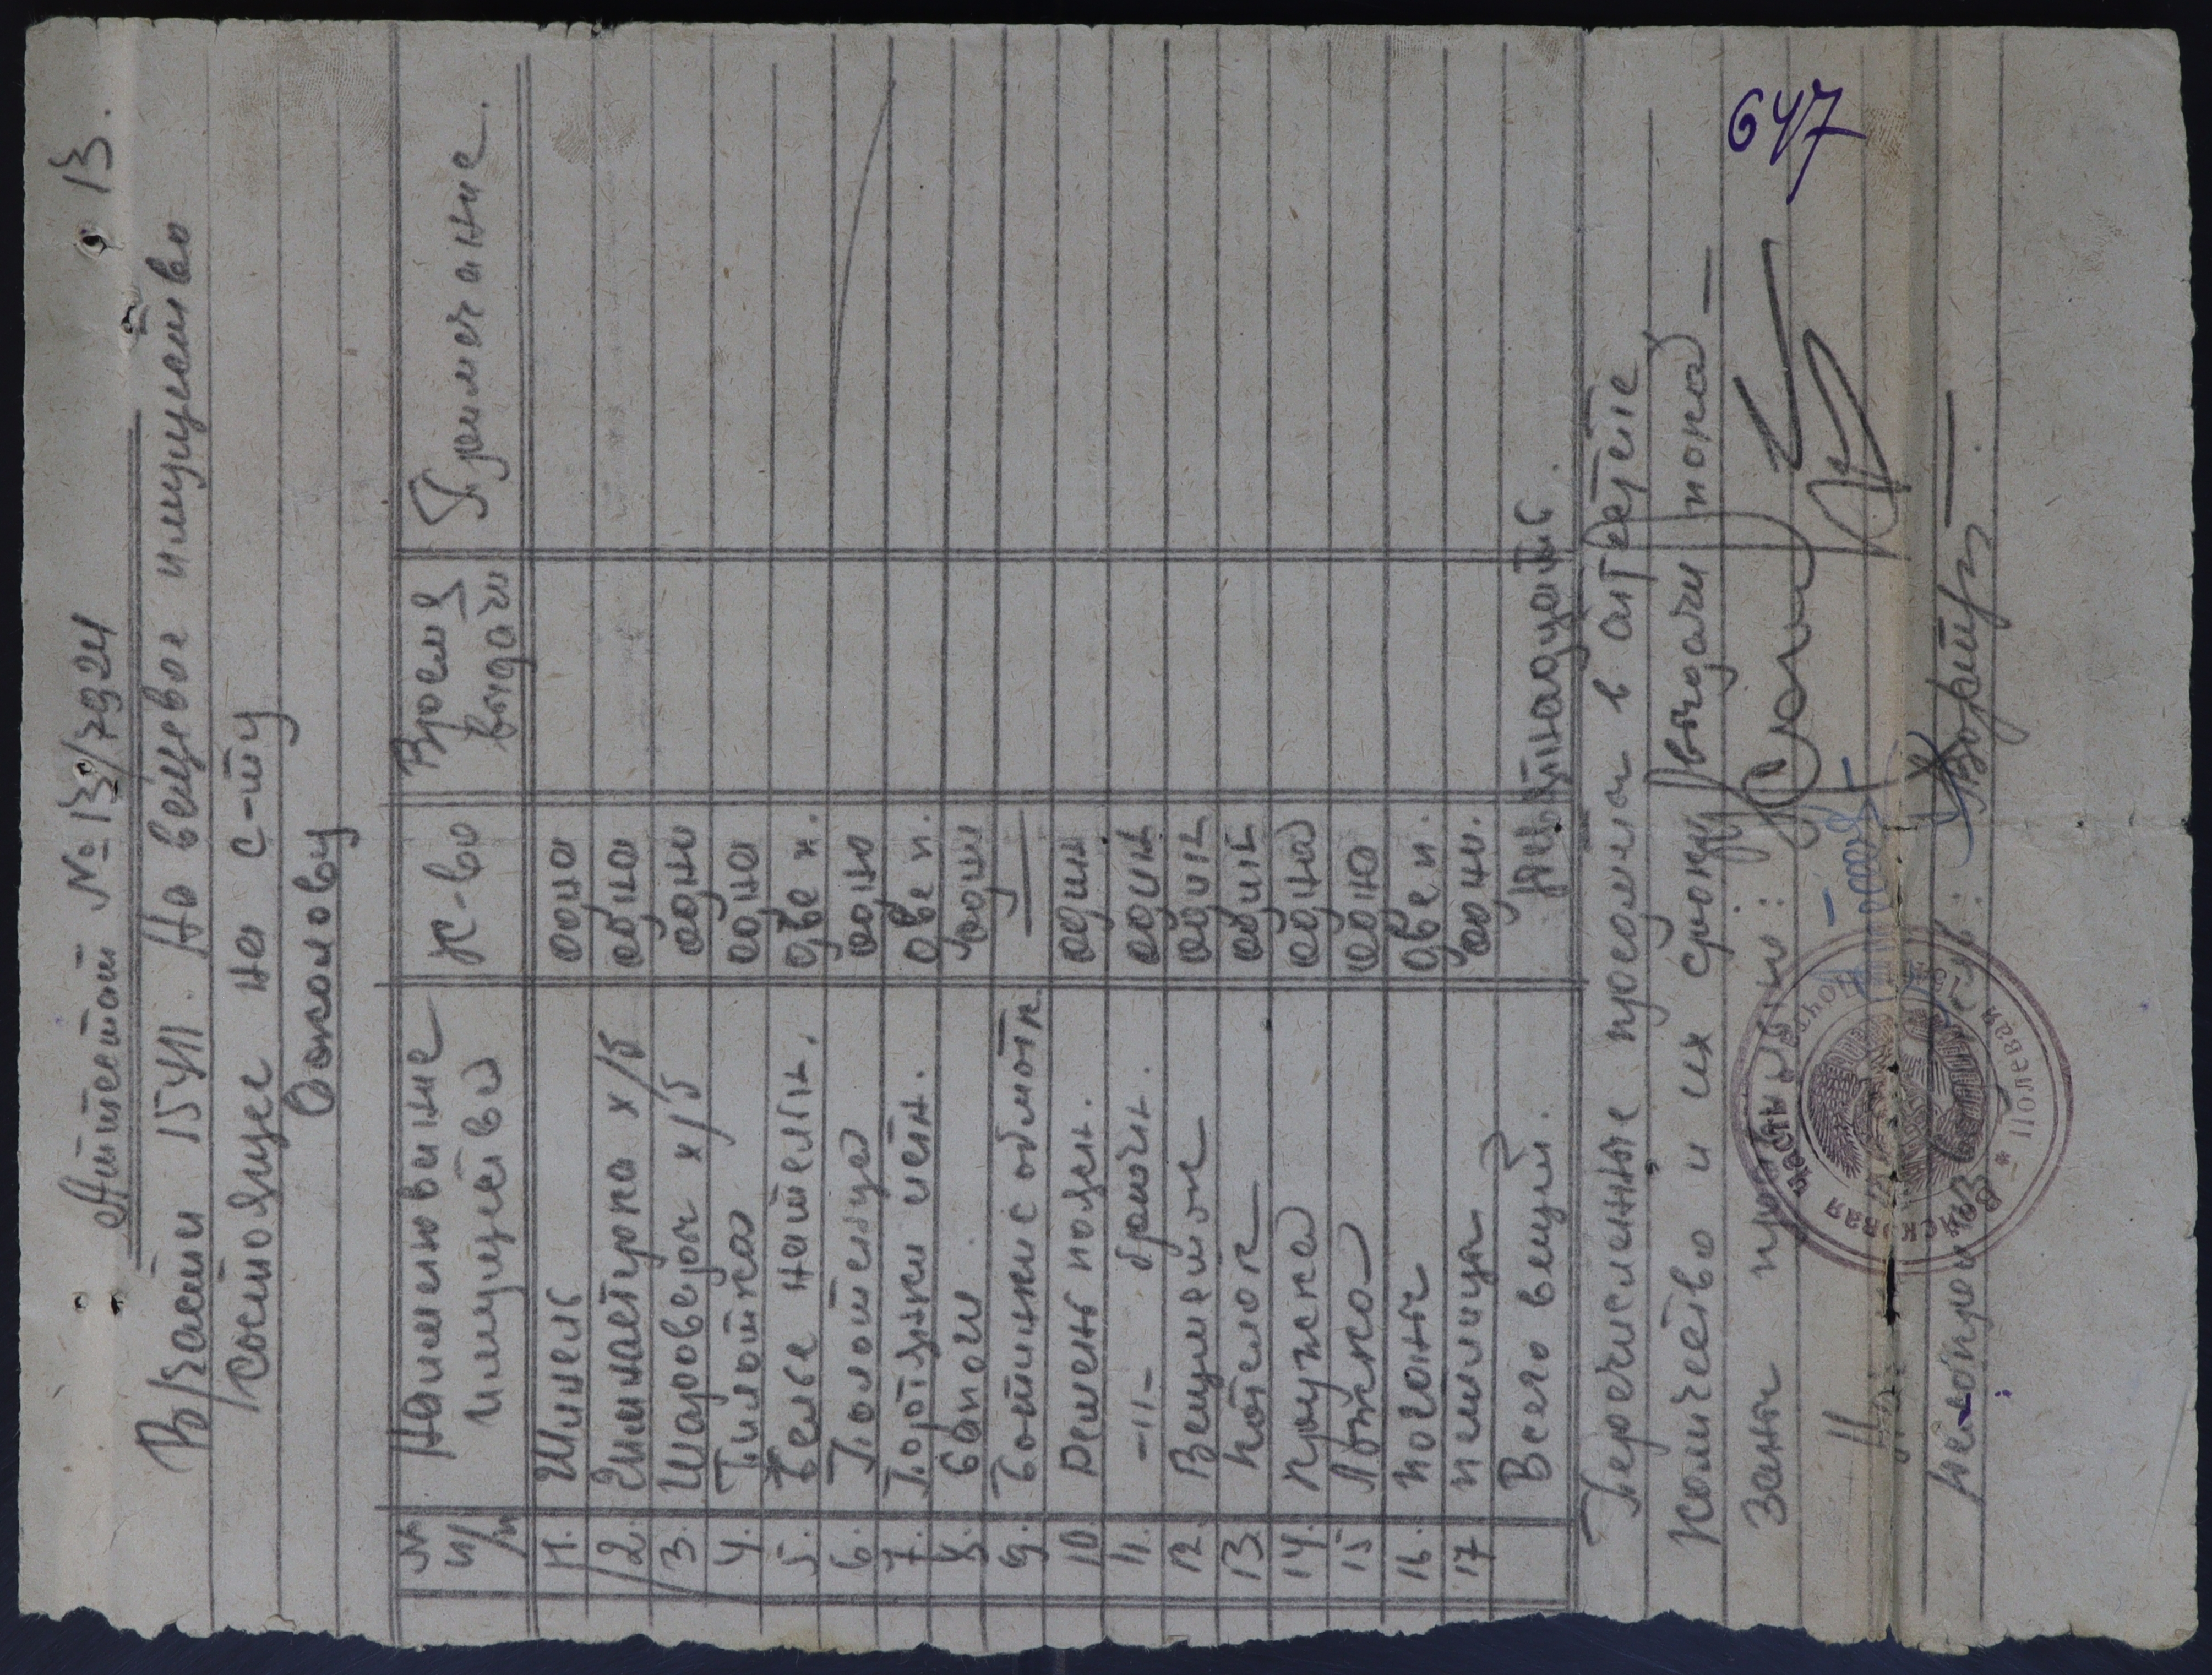 13.
Аттестат № 13/7924
В/части 15411. На вещевое имущество
состоящее на с-ту
Соколову
№ п/п Наименование имущества К-во Время выдачи Примечание.
1. Шинель одна
2. Гимнастурка х/б одна
3. Шаровары х/б одни
4. Пилотка одна
5. Белье нательн. две п.
6. Полотенце одно
7. Портянки летн. две п.
8. Сапоги одни
9. Ботинки с обмотк. —
10 Ремень поясн. один
11. -"- брючн. один
12. Вещмешок один
13. Котелок один
14. Кружка одна
15 Ложка одна
16. Погоны две п.
17 Петлицы одни.
Всего вещей. Девятнадцать.
Перечисленные предметы в аттестате
количество и их сроки выдачи пока-
заны правильно:
647
Войсковая часть
Полевая почта